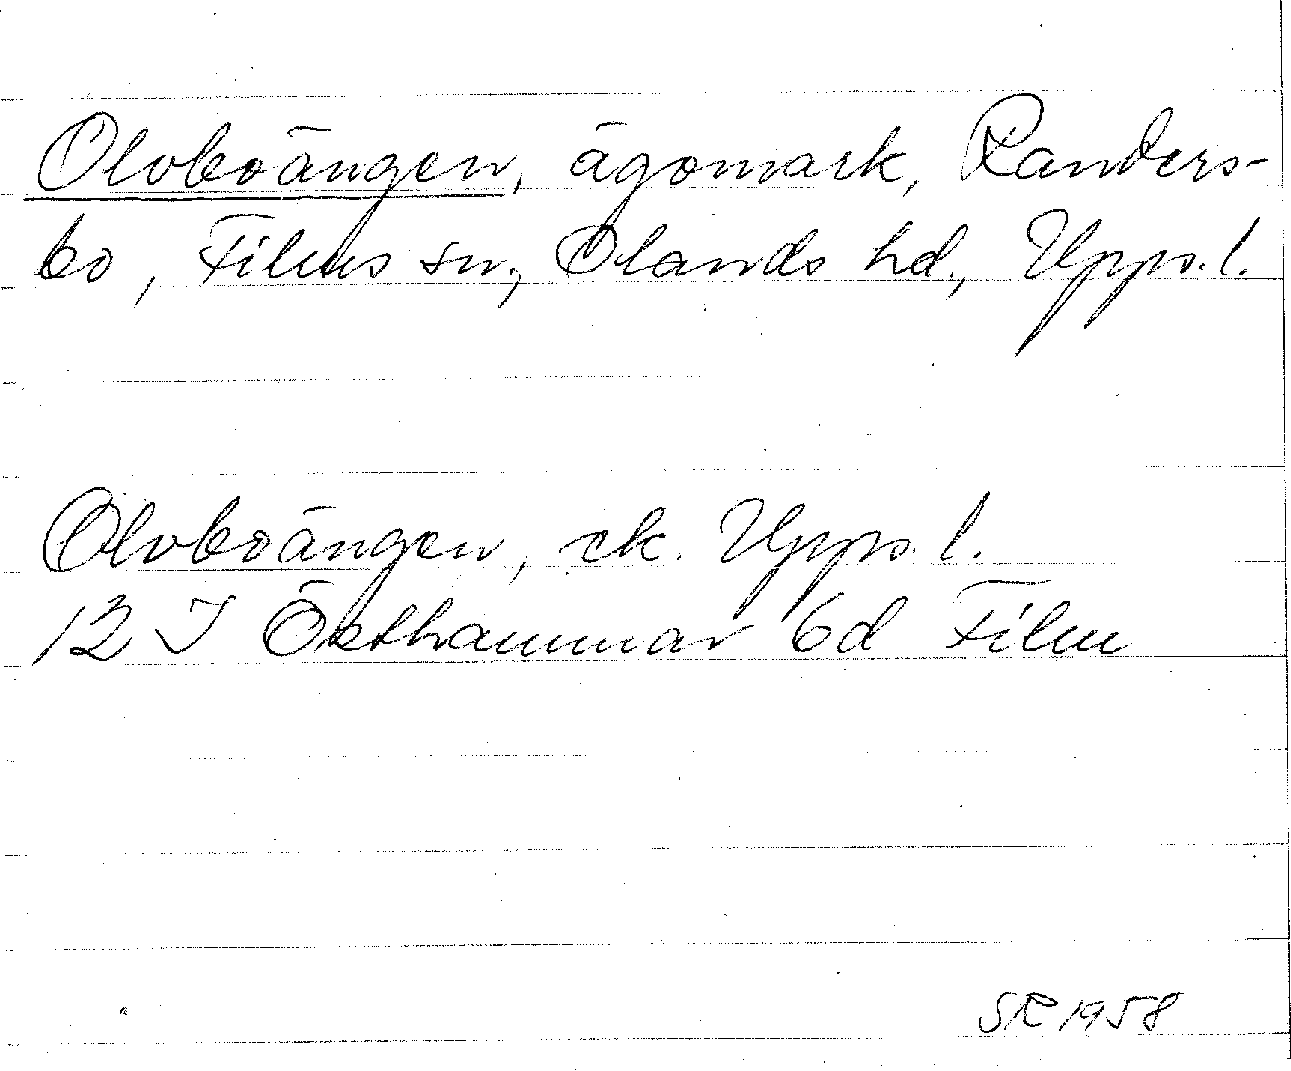 Olvboängen, ägomark, Randers-
bo, Films sn, Olands hd, Upps.l.
Olvboängen, ek. Upps. l.
12 I Östhammar 6d Film
SR 1958